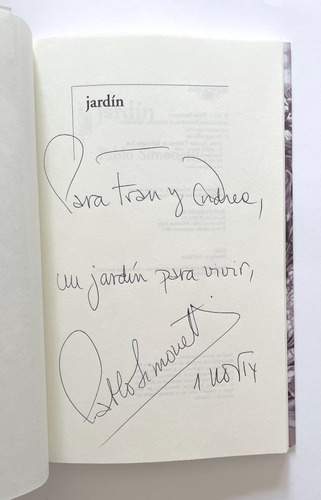 jardín
Para Fran y Andrea,
un jardín para vivir,
Pablo Simonetti.